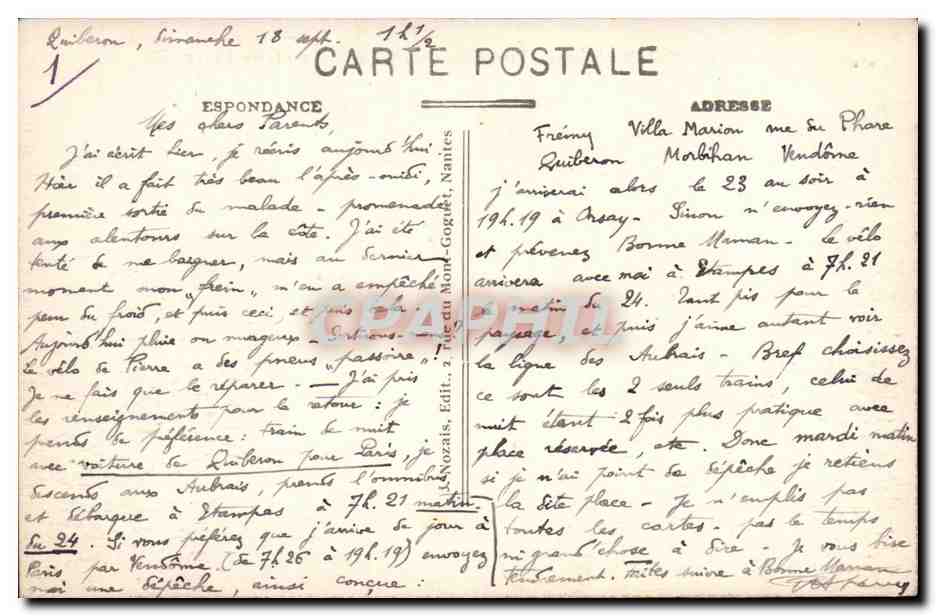 Quiberon, Dimanche 18 sept. 1h 1/2
1/
CARTE POSTALE
ESPONDANCE
ADRESSE
Mes chers Parents,
J'ai écrit hier, je récris aujourd'hui
Hier il a fait très beau l'après-midi,
première sortie du malade - promenade
aux alentours sur la côte. J'ai été
tenté de me baigner, mais au dernier
moment mon "frein" m'en a empêché
peur du froid, et puis ceci, et puis cela.
Aujourd'hui pluie ou nuageux - Sortirons-nous?
Le vélo de Pierre a des pneus "passoire"!
Je ne fais que le réparer. - J'ai pris
les renseignements pour le retour : je
prends de préférence : train de nuit
avec voiture de Quiberon pour Paris, je
descends aux Aubrais, prends l'omnibus
et débarque à Etampes à 7h.21 matin
du 24. Si vous préférez que j'arrive de jour à
Paris par Vendôme (de 7h.26 à 19h.19) envoyez
moi une dépêche, ainsi conçue :
J. Nozais, Edit., 2, rue du Mont-Goguet, Nantes
Frémy Villa Marion rue du Phare
Quiberon Morbihan Vendôme
j'arriserai alors le 23 au soir à
19h.19 à Orsay - Sinon n'envoyez rien
et prévenez Bonne Maman - Le vélo
arrivera avec moi à Etampes à 7h.21
le matin du 24. Tant pis pour le
paysage, et puis j'aime autant voir
la ligne des Aubrais - Bref choisissez
ce sont les 2 seuls trains, celui de
nuit étant 2 fois plus pratique avec
place réservée, etc. Donc mardi matin
si je n'ai point de dépêche je retiens
la dite place - Je n'emplis pas
toutes les cartes - pas le temps
ni grand'chose à dire - Je vous bise
tendrement. faites suivre à Bonne Maman
CPAPHIL